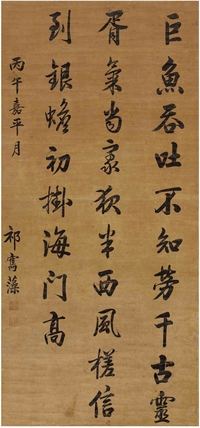 巨魚吞吐不知勞千古靈
胥氣尚豪欲半西風槎信
到銀蟾初掛海门高
丙午嘉平月
祁寯藻